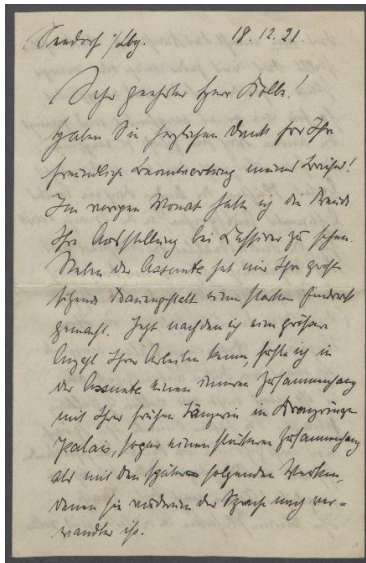 Seedorf i/Lbg. 19.12.21.
Sehr geehrter Herr Kolbe!
Haben Sie herzlichen Dank für Ihre
freundliche Beantwortung meines Briefes!
Im vorigen Monat hatte ich die Freude
Ihre Ausstellung bei Cassirer zu sehen.
Neben der Assunta hat mir Ihre große
sitzende Frauengestalt einen starken Eindruck
gemacht. Jetzt nachdem ich eine größere
Anzahl Ihrer Arbeiten kenne, fühle ich in
der Assunta einen inneren Zusammenhang
mit Ihrer frühen Tänzerin im Kronprinzen
Palais, sogar einen stärkeren Zusammenhang
als mit den später folgenden Werken,
denen sie in der Sprache noch ver-
wandter ist.